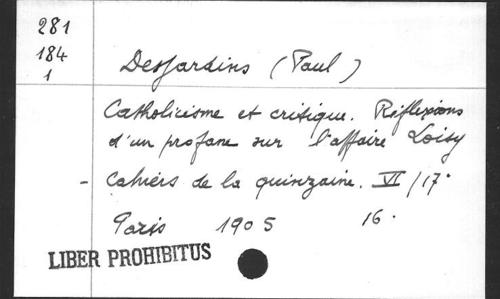 281
184
1
Desjardins (Paul)
Catholicisme et critique. Réflexions
d'un profane sur l'affaire Loisy
- Cahiers de la quinzaine. VI/17°
Paris 1905 16.
LIBER PROHIBITUS